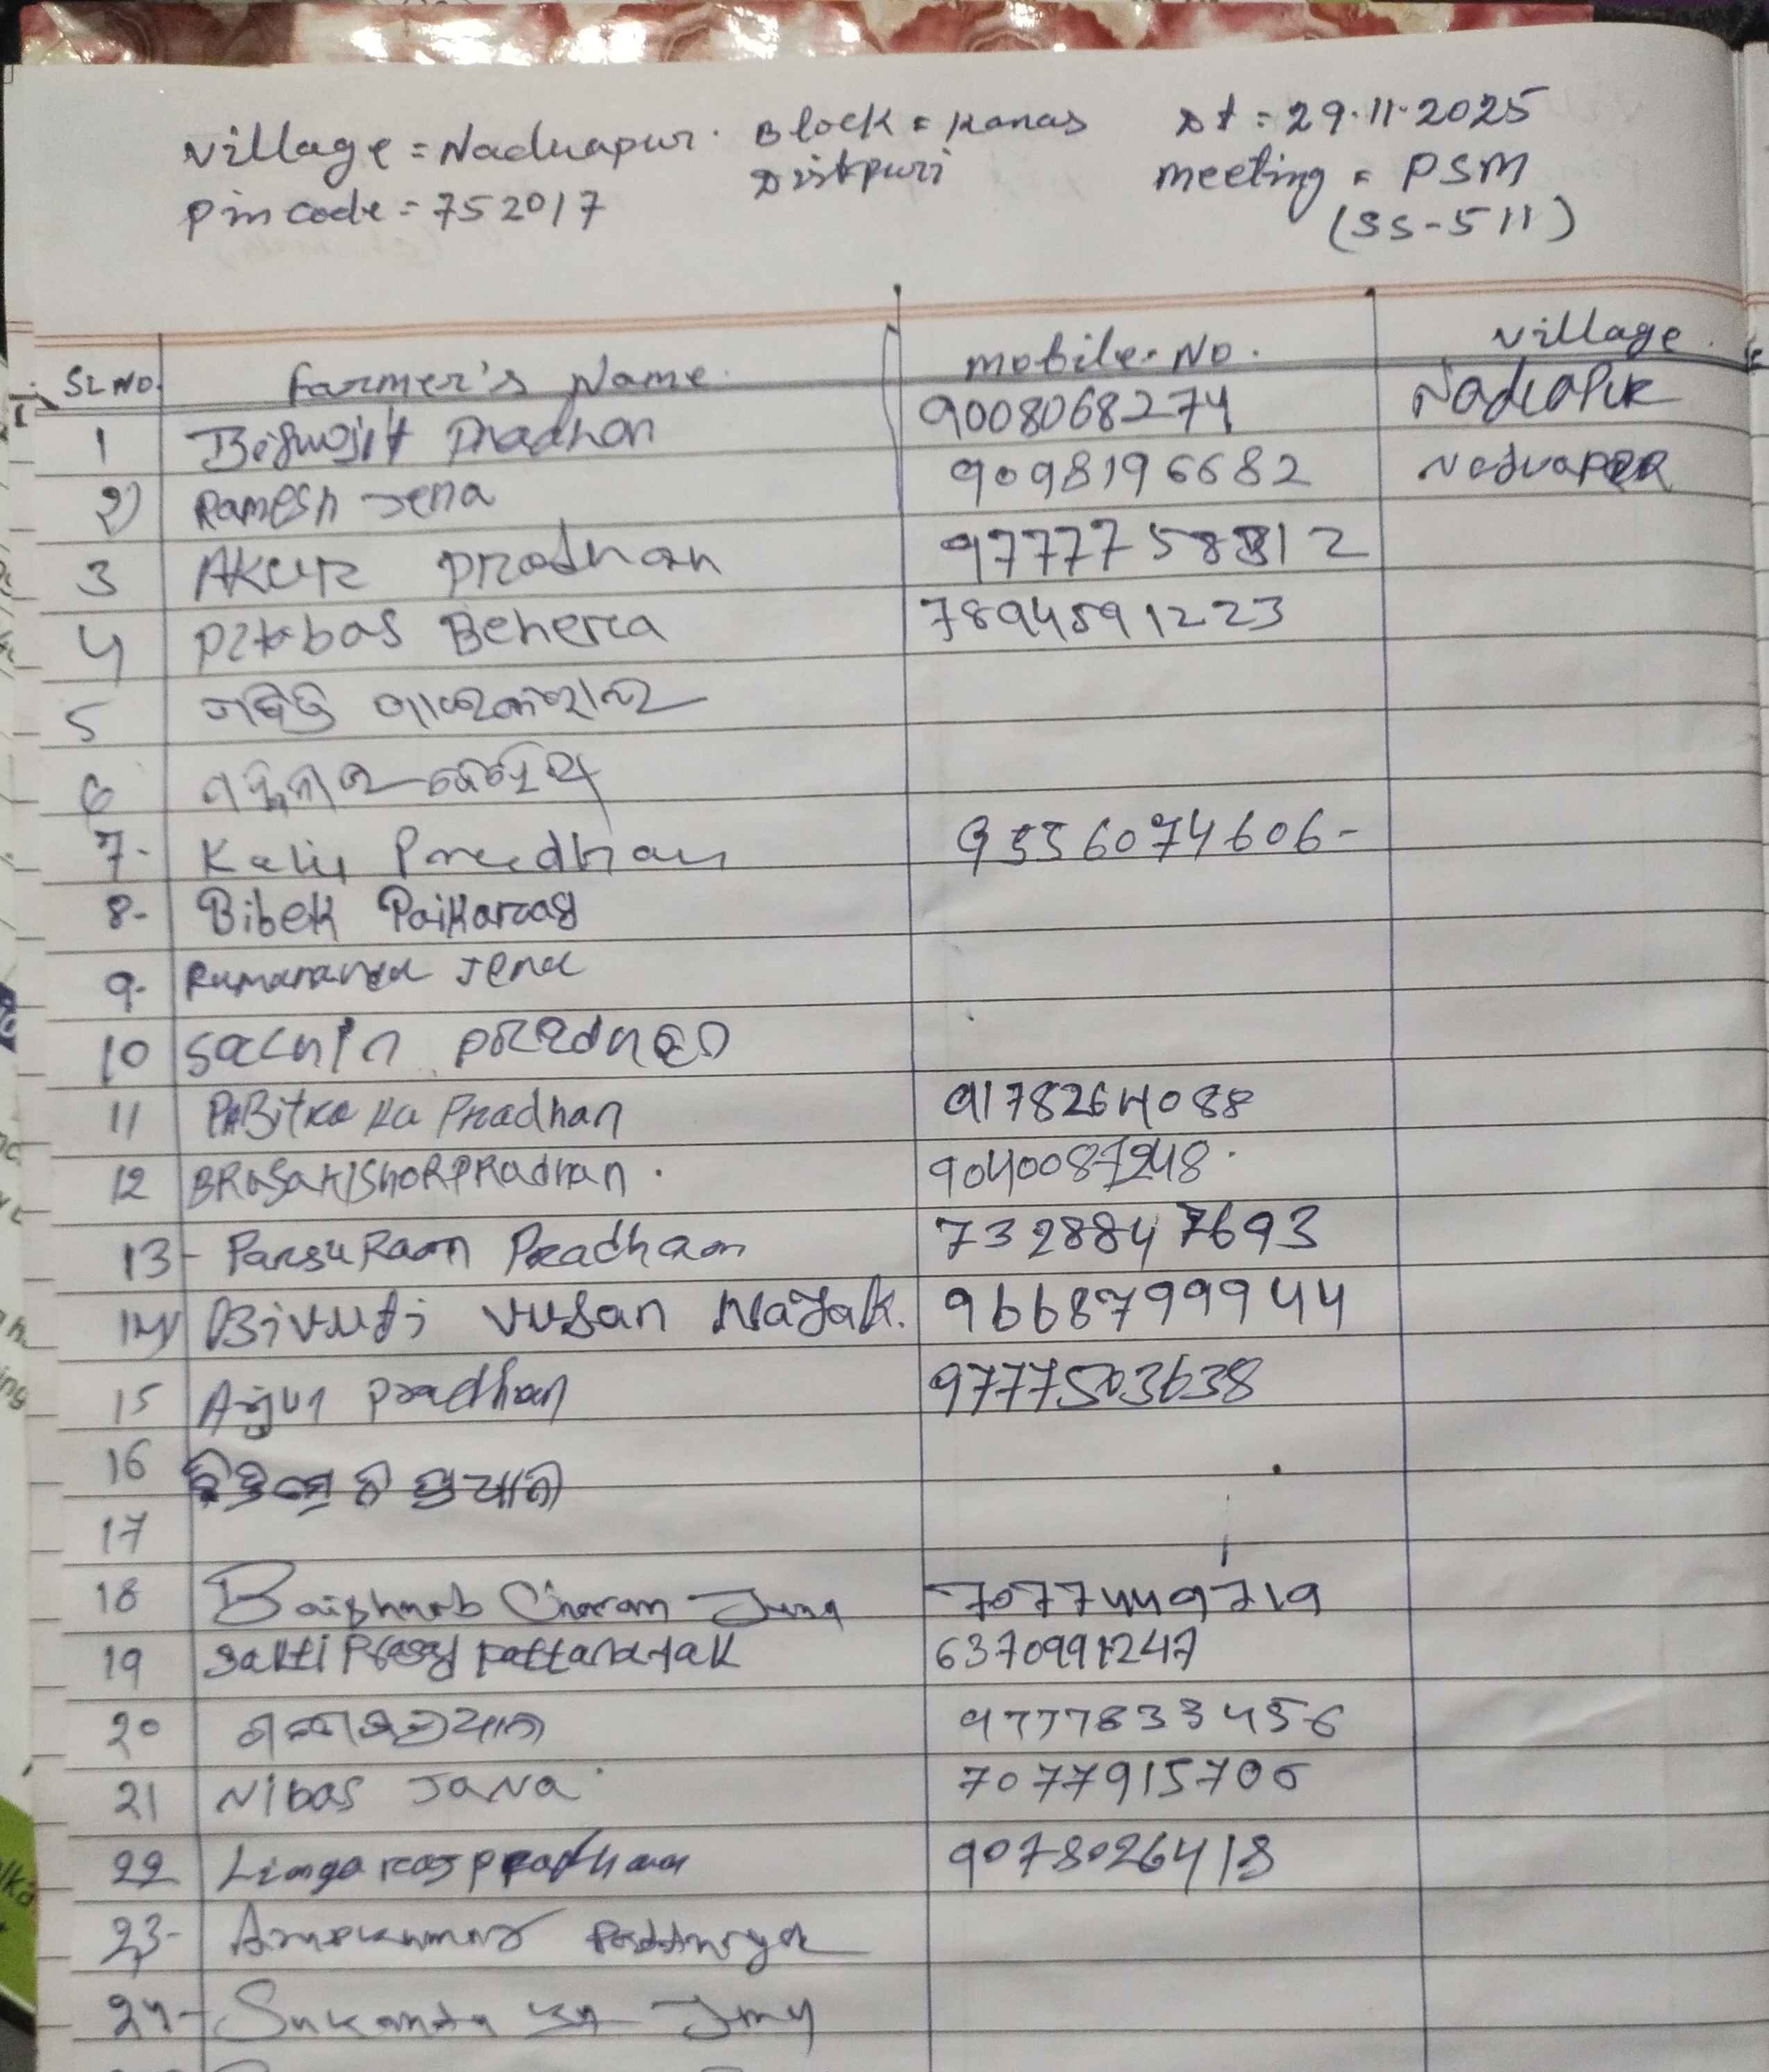 Village = Naduapur. Block = Kanas Dt = 29.11.2025
Dist puri meeting = PSM
Pin code = 752017 (SS-511)
SL NO. Farmer's Name. mobile. No. village.
1 Biswojit Pradhan 9008068274 Naduapur
2) Ramesh Jena 9098196682 Naduapur
3 AKUR pradhan 9777758812
4 Pitabas Behera 7894591223
5
6
7. Kalu Pradhan 9556074606-
8- Bibek Paikaray
9. Ramananda Jena
10 Sachin pradhan
11 PABitra Ku Pradhan 9178264088
12 BRAJAKISHOR PRadhan. 9040087248.
13- ParsuRam Pradhan 7328847693
14) Bivuti vusan Nayak. 9668799944
15 Arjun pradhan 9777503638
16
17
18 Baishnab Charan Jena 7077449719
19 Sakti Prasad pattanayak 6370991247
20 9777833456
21 Nibas Jana 7077915706
22 Lingaraj pradhan 9078026418
23-
24- Sukanta Jena